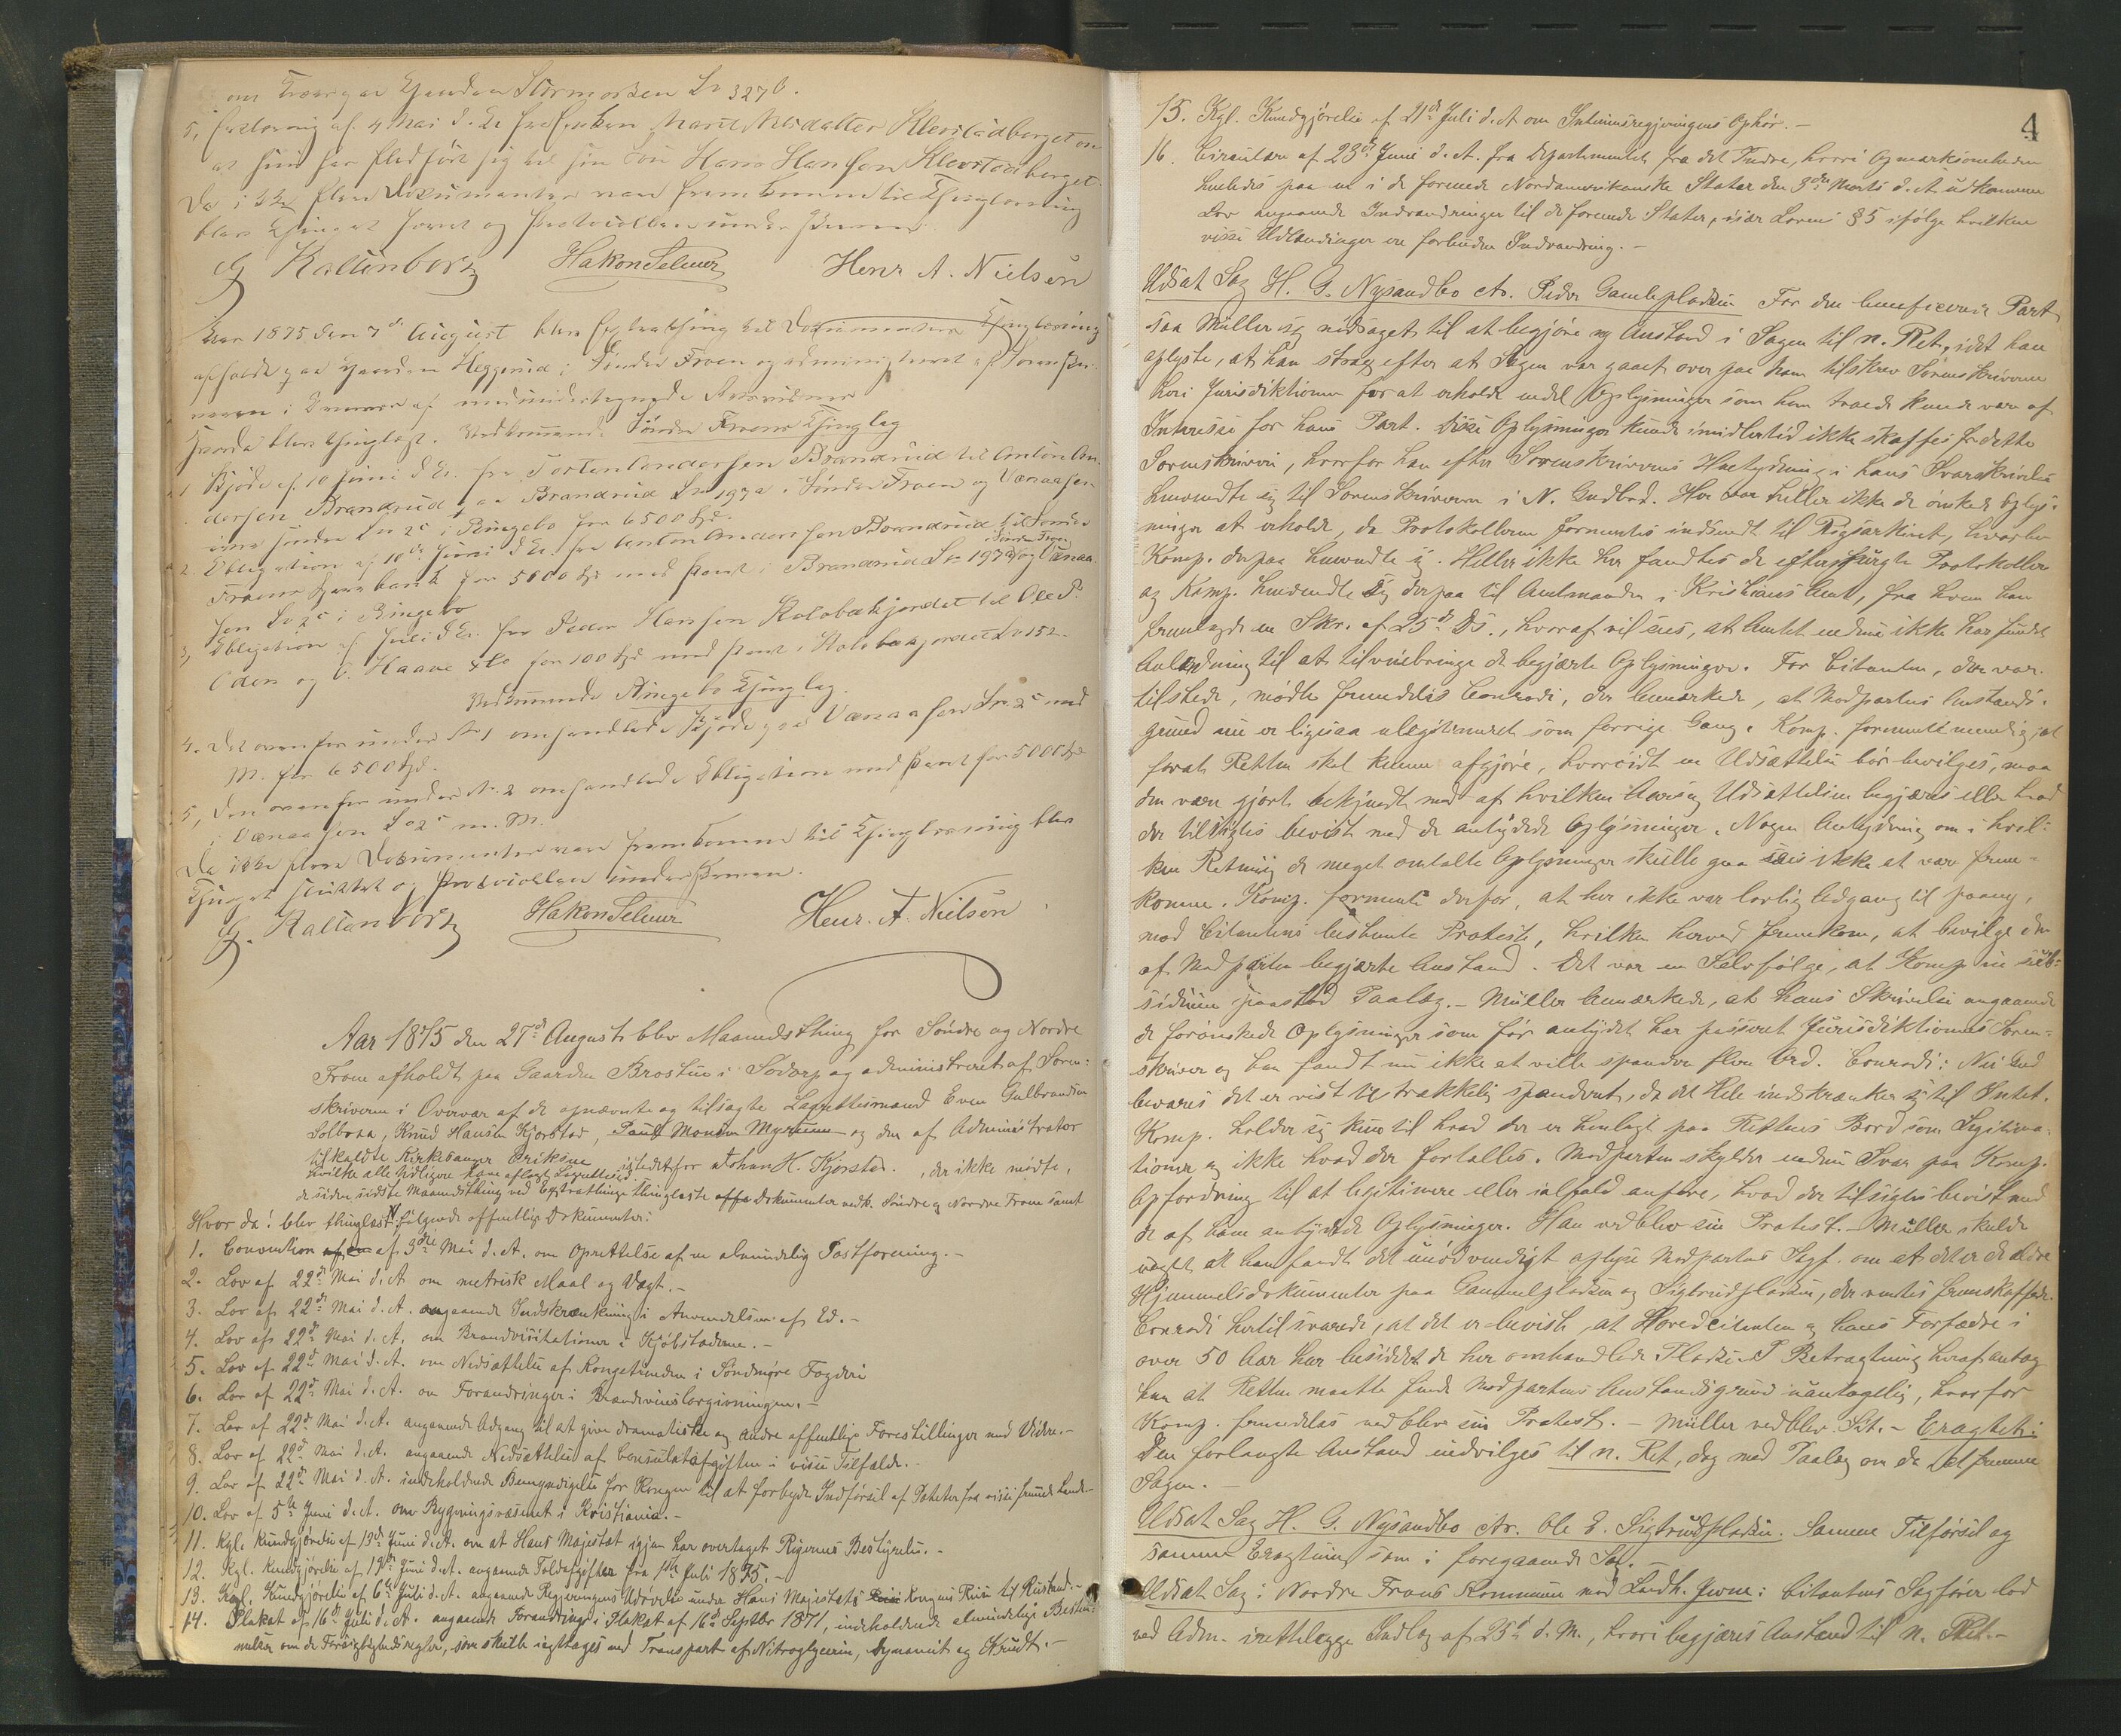 om Gaarden Stormorken Lno 327b.
5, Erklæring af 4 Mai d. Ar fra Enken Marit Nilsdatter Klevstadberget om
at hun har fledført sig til sin Søn Hans Hansen Klevstadberget.
Da ikke flere Dokumenter vare fremkomne til Thinglæsning
blev Thinget hævet og Protocollen underskreven.
G Kaltenborn HakonSelmer Henr A. Nielsen
Aar 1875 den 7de August blev Extrathing til Dokumenters Thinglæsning
afholdt paa Gaarden Heggerud i Søndre Froen og administreret af Sorenskri-
veren i Overvær af medundertegnede Retsvidner
Hvorda blev thinglæst. Vedkommende Søndre Froens Thinglag
1 Skjøde af 10 Juni d Ar. fra Torsten Andersen Brandrud til Anton An-
dersen Brandrud paa Brandrud Lno 197a i Søndre Froen og Vænaasen
søndre Lno 2c i Ringebo for 6500 Kr.
2. Obligation af 10de Juni d Ar. fra Anton Andersen Brandrud til Søndre
Froens Sparebank for 5000 Kr med Pant i Brandrud Lno 197a i Søndre Froen og Vænaa-
sen Lno 2c i Ringebo
3, Obligation af Juli d Ar. fra Peder Hansen Kolobækjordet til Ole P.
Oden og O. Haave & Co for 100 Kr med Pant i Kolobækjordet Lno 152.
Vedkommende Ringebo Thinglag.
4. Det ovenfor under No 1 omhandlede Skjøde paa Vænaasen Lno 2c med
M. for 6500 Kr.
5, Den ovenfor under No. 2 omhandlede Obligation med Pant for 5000 Kr
i Vænaasen Lno 2c m. M.
Da ikke flere Dokumenter vare fremkomne til Thinglæsning blev
Thinget sluttet og Protocollen underskreven.
G. Kaltenborn HakonSelmer Henr. A. Nielsen
Aar 1875 den 27de August blev Maanedsthing for Søndre og Nordre
Frone afholdt paa Gaarden Brostuen i Sødorp og administreret af Soren-
skriveren i Overvær af de opnævnte og tilsagte Laugrettesmænd Even Gulbrandsen
Solbraa, Knud Hansen Kjørstad, Paul Monsen Myrum og den af Administrator
tilkaldte Kirkesanger Eriksen istedetfor Johan H. Kjørstad, der ikke mødte,
hvilke alle tidligere have aflagt Laugretteseed
de siden sidste Maanedsthing ved Extrathinge thinglæste Dokumenter vedk. Søndre og Nordre Frone samt
Hvor da! blev thinglæst følgende offentlige Dokumenter:
1. Convention af 3die Mai d. A. om Oprettelse af en almindelig Postforening.-
2. Lov af 22de Mai d. A. om metrisk Maal og Vægt.-
3. Lov af 22de Mai d. A. angaaende Indskrænkning i Anvendelsen af Ed.-
4. Lov af 22de Mai d. A. om Brandvisitationer i Kjøbstæderne.-
5. Lov af 22de Mai d. A. om Nedsættelse af Kongetienden i Søndmøre Fogderi
6. Lov af 22de Mai d. A. om Forandringer i Brændevinslovgivningen.-
7. Lov af 22de Mai d. A. angaaende Adgang til at give dramatiske og andre offentlige Forestillinger med Videre.-
8. Lov af 22de Mai d. A. angaaende Nedsættelse af Consulatafgiften i visse Tilfælde.-
9. Lov af 22de Mai d. A. indeholdende Bemyndigelse for Kongen til at forbyde Indførsel af Poteter fra visse fremmede Lande.-
10. Lov af 5te Juni d. A. om Bygningsvæsenet i Kristiania.-
11. Kgl. Kundgjørelse af 13de Juni d. A. om at Hans Majestæt igjen har overtaget Rigernes Bestyrelse.-
12. Kgl. Kundgjørelse af 17de Juni d. A. angaaende Toldafgifter fra 1ste Juli 1875.-
13. Kgl. Kundgjørelse af 6te Juli d. A. angaaende Regjeringens Udøvelse under Hans Majestæts Kongens Reise til Rusland.-
14. Plakat af 16de Juli d. A. angaaende Forandringer i Plakat af 16de Septbr 1871, indeholdende almindelige Bestem-
melser om de Forsigtighedsregler, som skulle iagttages ved Transport af Nitroglycerin, Dynamit og Krudt.-
4
15. Kgl. Kundgjørelse af 21de Juli d. A. om Interimsregjeringens Ophør.-
16. Circulære af 23de Juni d. A. fra Departementet for det Indre, hvori Opmærksomheden
henledes paa en i de forenede Nordamerikanske Stater den 3die Marts d. A. udkommen
Lov angaaende Indvandringer til de forenede Stater, især Lovens § 5 ifølge hvilken
visse Udlændinger er forbuden Indvandring.-
Udsat Sag H. G. Nysandbo ctr. Peder Gamlepladsen For den beneficerede Part
saa Müller sig nødsaget til at begjære ny Anstand i Sagen til n. Ret, idet han
oplyste, at han strax efter at Sagen var gaaet over paa ham tilskrev Sorenskriveren
heri Jurisdiktionen for at erholde endel Oplysninger som han troede kunde være af
Interesse for hans Part. Disse Oplysninger kunde imidlertid ikke skaffes fra dette
Sorenskriveri, hvorfor han efter Sorenskriverens Hentydning i hans Svarskrivelse
henvendte sig til Sorenskriveren i N. Gudbrd. Her var heller ikke de ønskede Oplys-
ninger at erholde, da Protokollerne formentes indsendt til Rigsarkivet, hvorhen
Komp. derpaa henvendte sig. Heller ikke her fandtes de efterspurgte Protokoller
og Komp. henvendte sig derpaa til Amtmanden i Kristians Amt, fra hvem han
fremlagde en Skr. af 25de Ds., hvoraf vil sees, at Amtet endnu ikke har fundet
Anledning til at tilveiebringe de begjærte Oplysninger. For Citanten, der var
tilstede, mødte fremdeles Conradi, der bemærkede, at Modpartens Anstands-
grund nu er ligesaa ulegitimeret som forrige Gang. Komp. formente nemlig, at
forat Retten skal kunne afgjøre, hvorvidt en Udsættelse bør bevilges, maa
den være gjort bekjendt med af hvilken Aarsag Udsættelsen begjæres eller hvad
der tilsigtes bevist med de antydede Oplysninger. Nogen Antydning om i hvil-
ken Retning de meget omtalte Oplysninger skulle gaa sees ikke at være frem-
komne. Komp. formente derfor, at her ikke var lovlig Adgang til paany,
mod Citantens bestemte Protest, hvilken herved fremkom, at bevilge den
af Modparten begjærte Anstand. Det var en Selvfølge, at Komp. in sub-
sidium paastod Paalæg.- Müller bemærkede, at hans Skrivelse angaaende
de forønskede Oplysninger som før antydet har passeret Jurisdiktionens Soren-
skriver og han fandt nu ikke at ville spandere flere Ord. Conradi: Nei Gud
bevares det er vist tilstrækkelig spanderet, da det Hele indskrænker sig til Intet.
Komp. holder sig kun til hvad der er henlagt paa Rettens Bord som Legitima-
tioner og ikke hvad der fortælles. Modparten skylder endnu Svar paa Komp.
Opfordring til at legitimere eller ialfald anføre, hvad der tilsigtes bevist med
de af ham antydede Oplysninger. Han vedblev sin Protest.- Müller skulde
noget at han fandt det unødvendigt oplyse Modpartens Sagf. om at det er de ældre
Hjemmelsdokumenter paa Gammelpladsen og Sigtrudpladsen, der ventes fremskaffede.
Conradi hertil svarede, at det er bevist, at Hovedcitanten og hans Forfædre i
over 50 Aar har besiddet de her omhandlede Pladse. I Betragtning heraf antog
han at Retten maatte finde Modpartens Anstandsgrund uantagelig, hvorfor
Komp. fremdeles vedblev sin Protest.- Müller vedblev Sit.- Eragtet:
Den forlangte Anstand indvilges til n. Ret, dog med Paalæg om da at fremme
Sagen.-
Udsat Sag H. G. Nysandbo ctr. Ole E. Sigtrudpladsen. Samme Tilførsel og
samme Eragtning som i foregaaende Sag.-
Udsat Sag: Nordre Frons Kommune mod Landh. Jevne: Citantens Sagfører lod
ved Adm. irettelægge Indlæg af 25de d. M., hvori begjæres Anstand til n. Ret.-